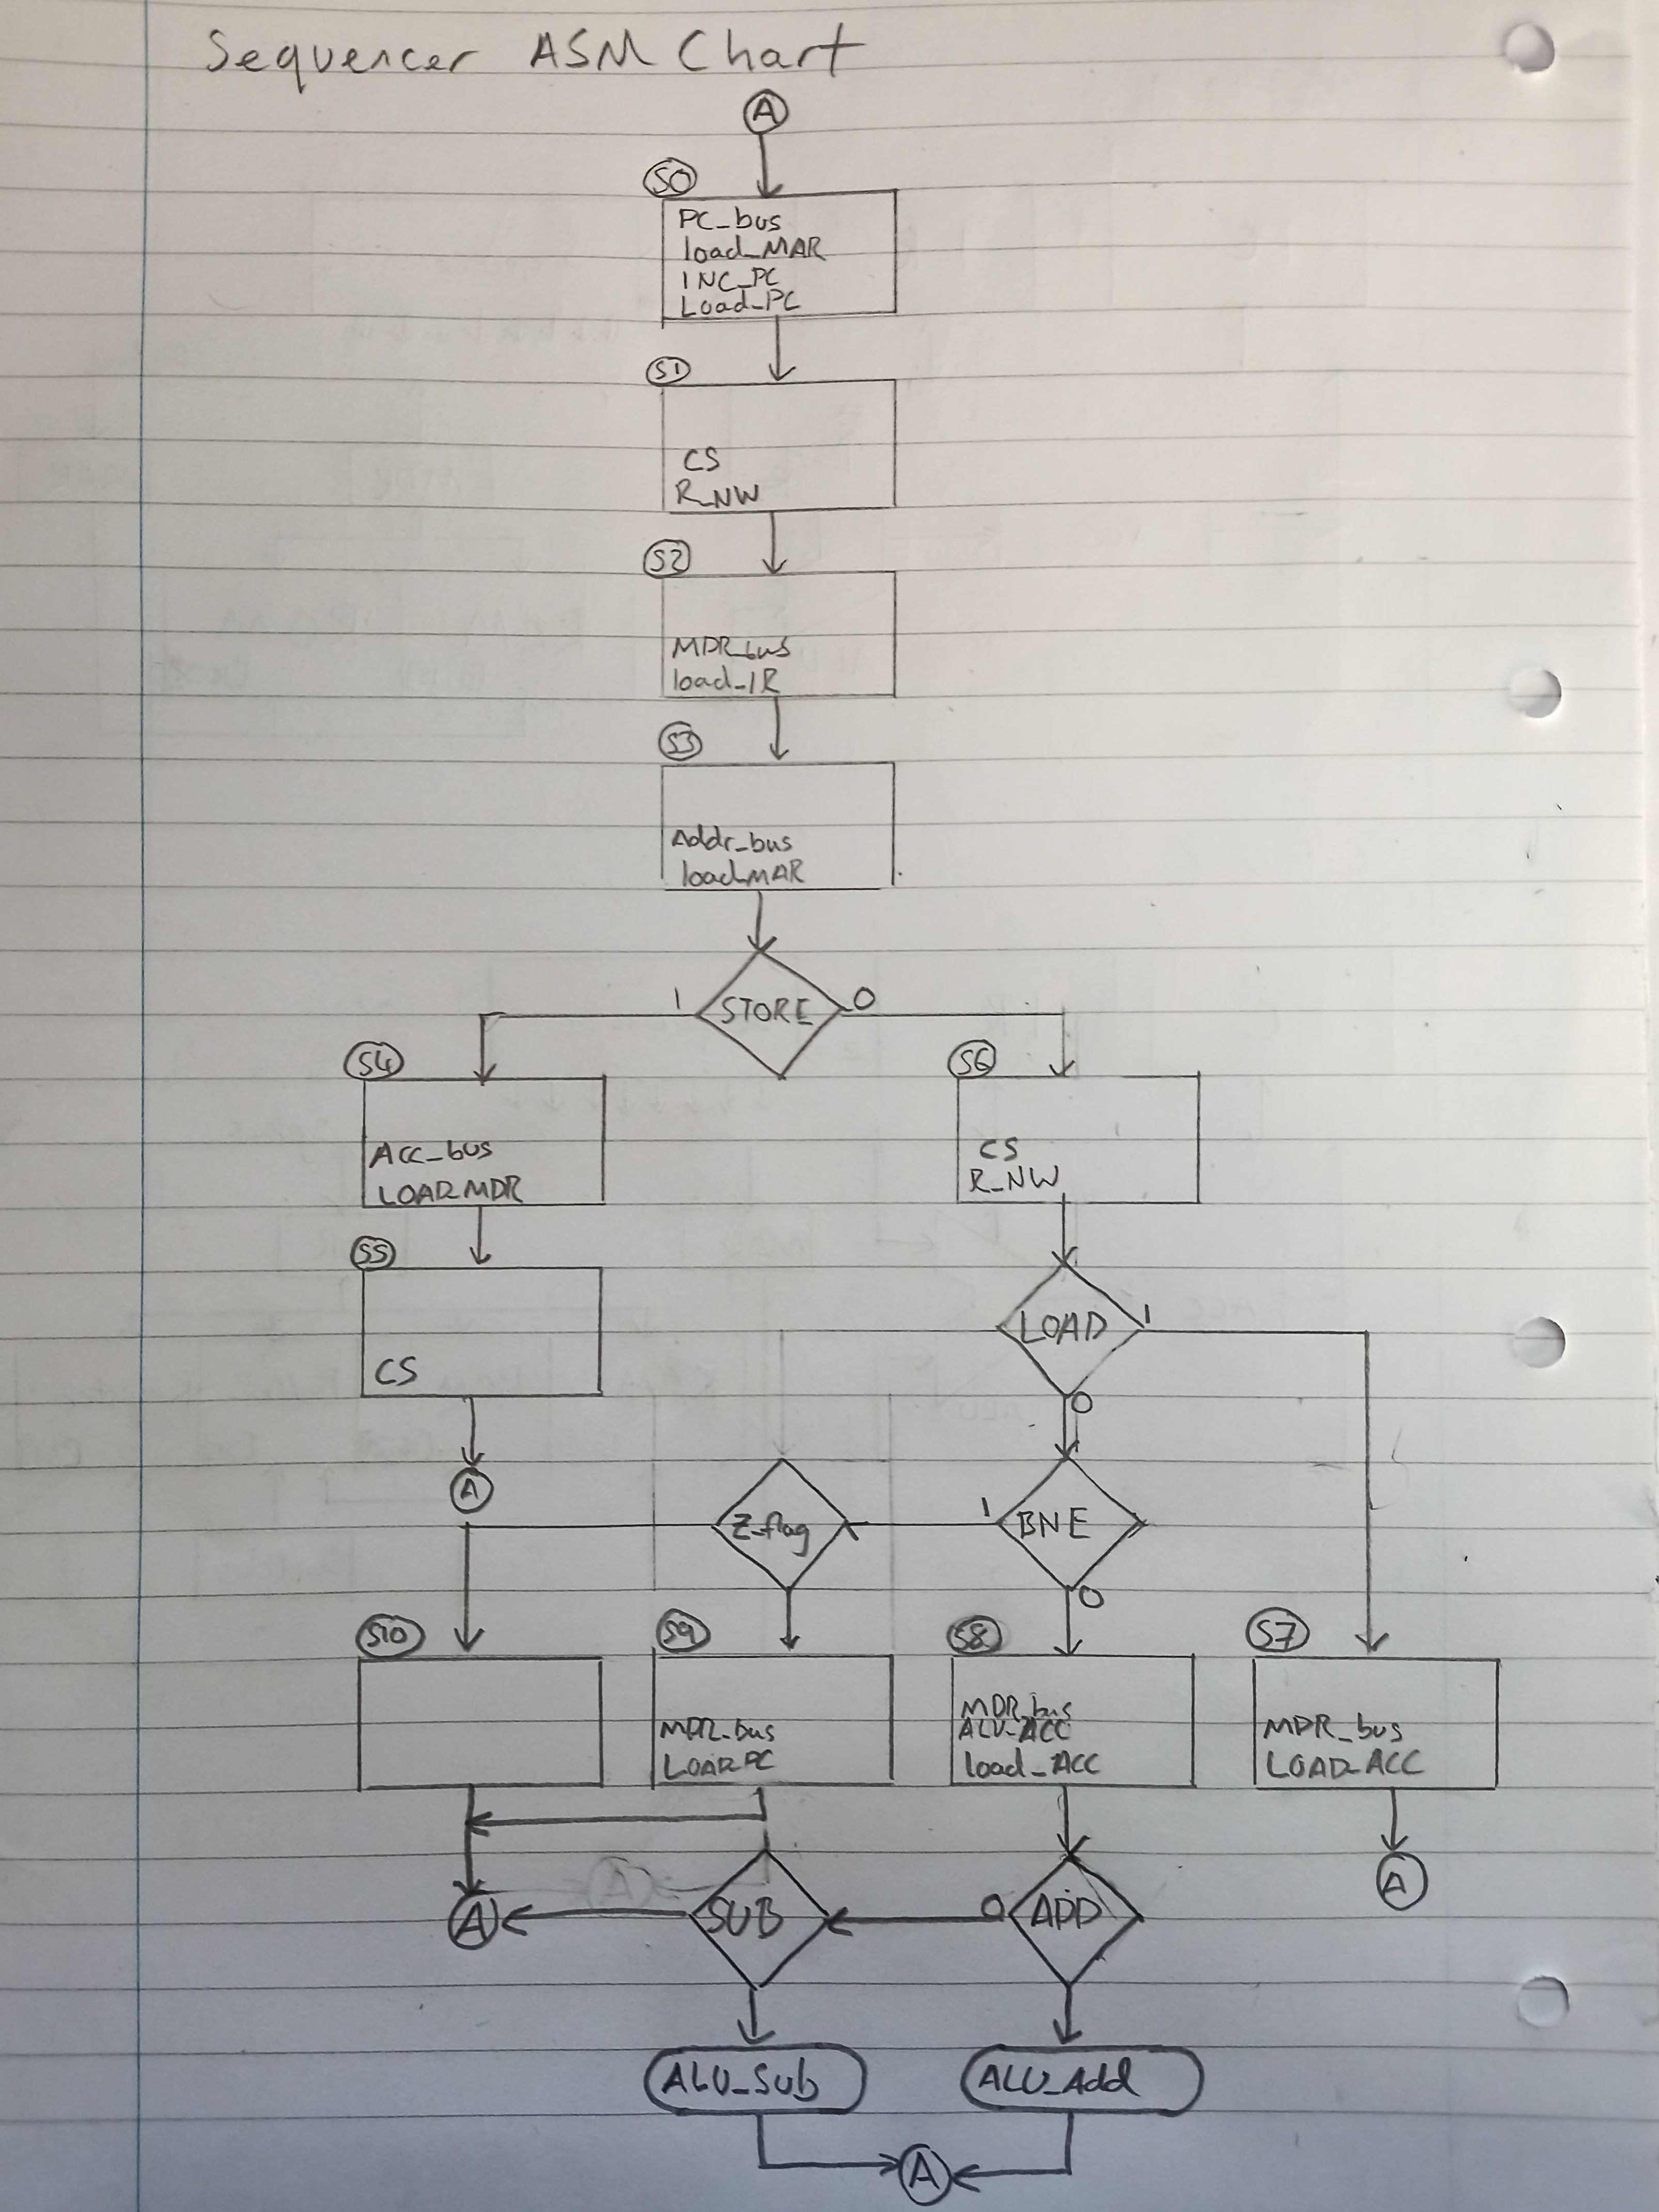 Sequencer ASM Chart
A
S0
PC_bus
load_MAR
INC_PC
Load_PC
S1
CS
R_NW
S2
MDR_bus
load_IR
S3
Addr_bus
load_MAR
1 STORE 0
S4
Acc_bus
LOAD_MDR
S6
CS
R_NW
S5
CS
A
LOAD 1
0
Z_flag
1 BNE
0
S10
S9
MDR_bus
LOAD_PC
S8
MDR_bus
ALU_ACC
load_ACC
S7
MDR_bus
LOAD_ACC
A
A
SUB
0 ADD
A
ALU_Sub
ALU_Add
A